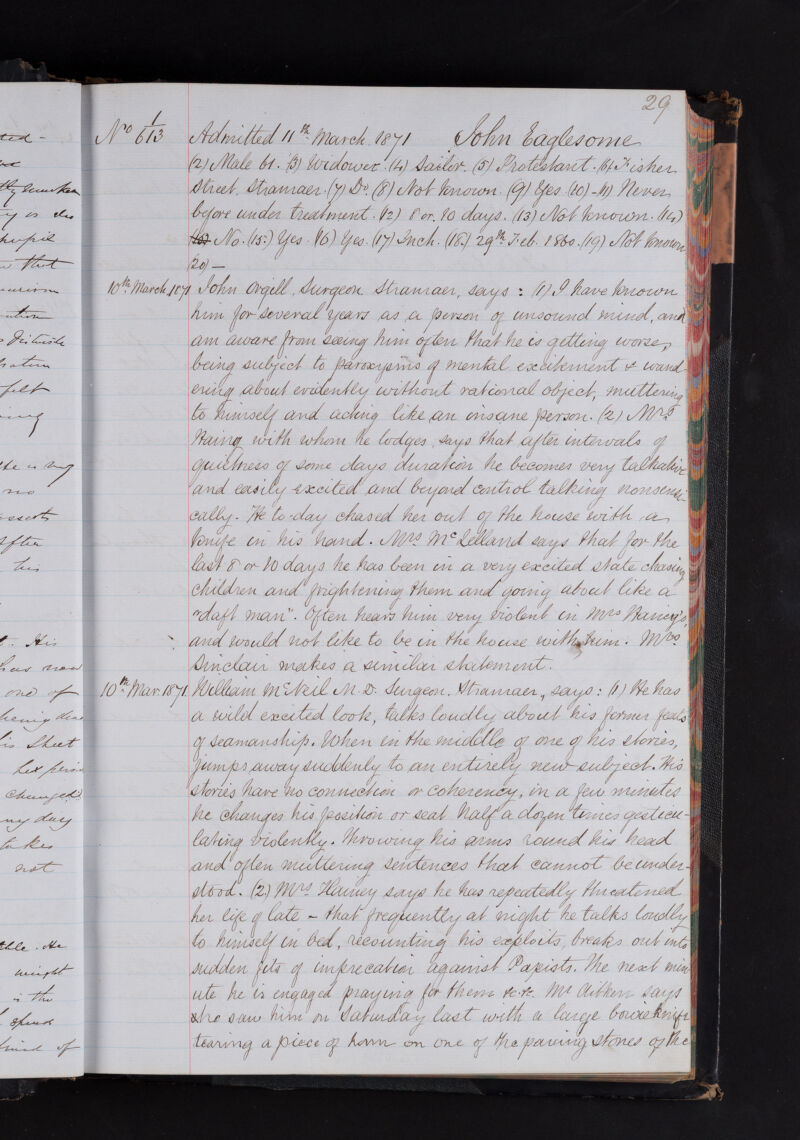 29
No 1/613 Admitted 11th March. 1871 John Eaglesome
(2) Male 61. (3) Widower (4) Sailor (5) Protestant (6) Fisher
Street, Stranraer. (7) Do. (8) Not known. (9) Yes (10) - 11) Never
before under treatment. (12) 8 or 10 days. (13) Not known. (14)
No. (15.) Yes. (16) Yes. (17) Inch. (18.) 29th Feb. 1860. (19) Not known
20) —
10th March 1871 John Orgill, Surgeon Stranraer, says: (1) I have known
him for several years as a person of unsound mind, and
am aware from seeing him often that he is getting worse,
being subject to paroxysms of mental excitement & wand
ering about evidently without rational object, muttering
to himself and acting like an insane person. (2) Mrs
with whom he lodges, says that after intervals of
quietness of some days duration he becomes very talkative
and easily excited and beyond control talking nonsensi
cally. He to-day chased her out of the house with a
knife in his hand. Mrs McLelland says that for the
last 8 or 10 days he has been in a very excited state chasing
children and frightening them and going about like a
"daft man". Often hears him very violent in Mrs
and would not like to be in the house with him. Mrs
Sinclair makes a similar statement.
10th Mar. 1871 William McNeil M.D. Surgeon. Stranraer, says: (1) He has
a wild excited look, talks loudly about his former feats
of seamanship. When in the middle of one of his stories,
jumps away suddenly to an entirely new subject. His
stories have no connection or coherency, in a few minutes
he changes his position or seat half a dozen times gesticu-
lating violently. Throwing his arms round his head
and often muttering sentences that cannot be under-
stood. (2) Mrs Hainey says he has repeatedly threatened
her life of late - that frequently at night he talks loudly
to himself in bed, recounting his exploits, breaks out into
sudden fits of imprecation against Papists. The next min
ute he is engaged praying for them &c &c. Mr Aitken says
he saw him on Saturday last with a large bowie knife
tearing a piece of horn on one of the paving stones of the